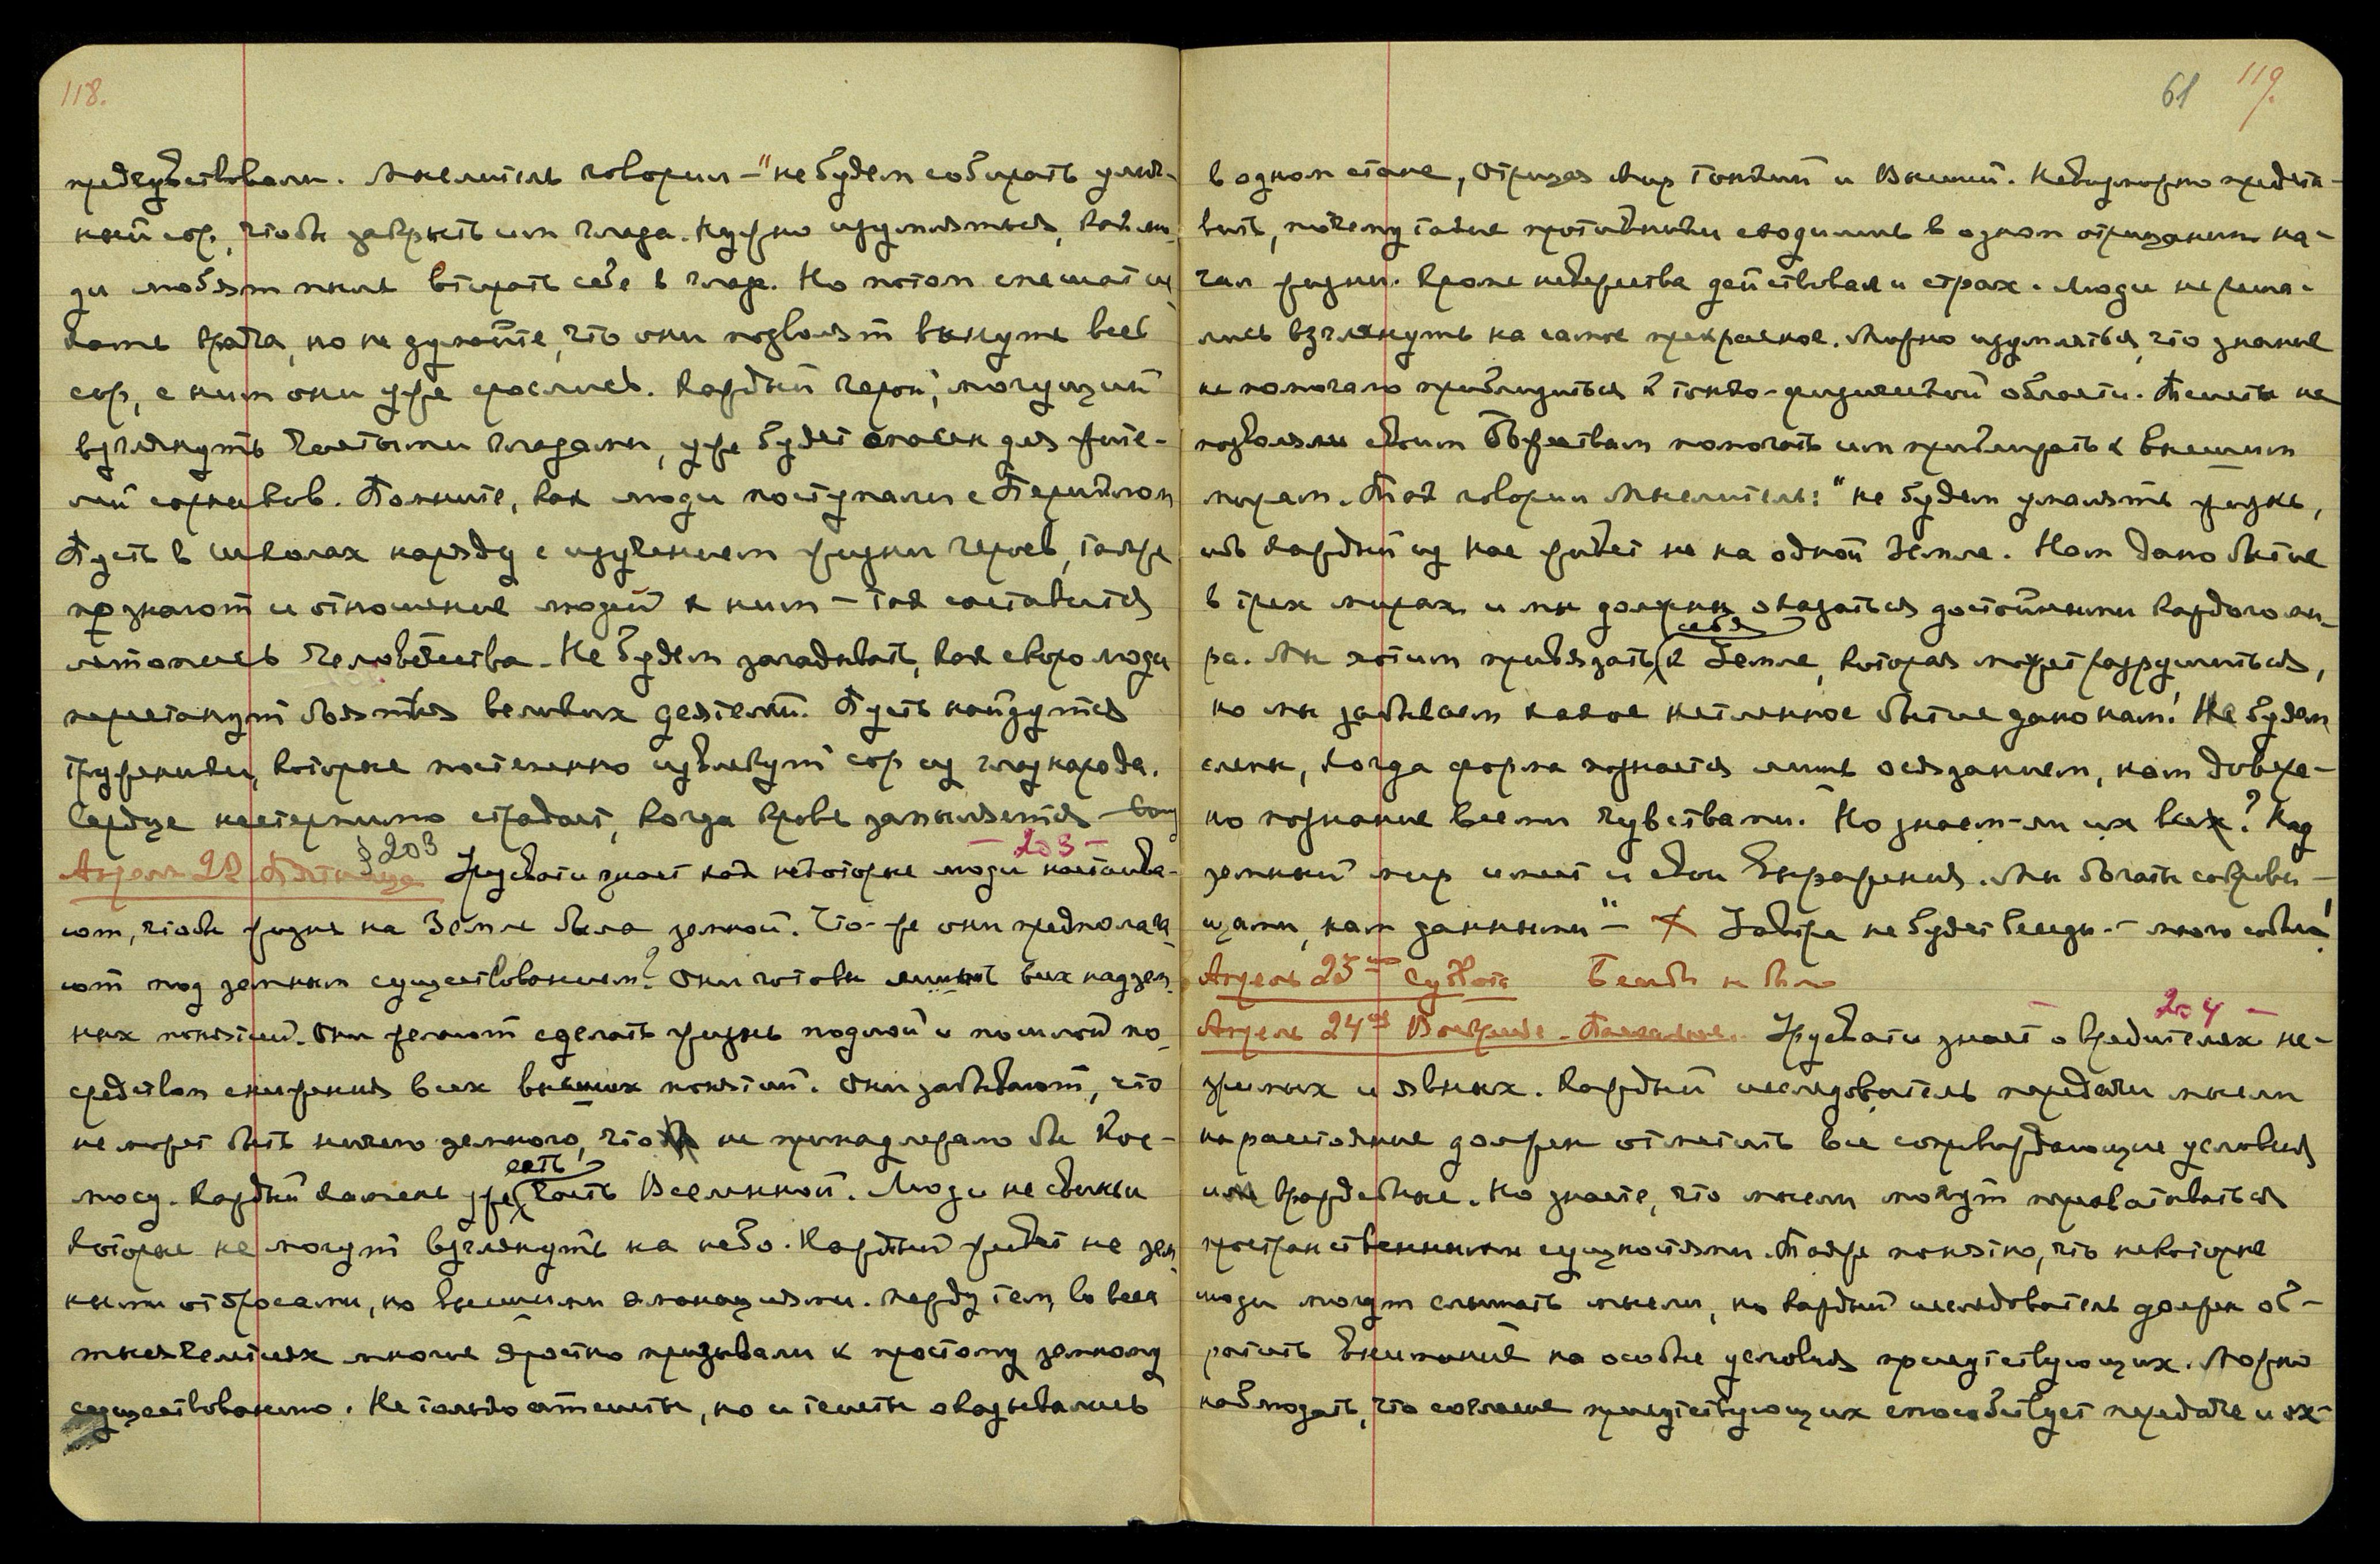 118.
предчувствовали. Мыслитель говорил — "не будем собирать улич-
ный сор, чтобы закрыть им глаза. Нужно изумляться, как лю-
ди любят пыль втирать себе в глаз. Но потом спешат ис-
кать врача, но не думайте, что они позволят вынуть весь
сор, с ним они уже срослись. Каждый герой, могущий
взглянуть чистыми глазами, уже будет опасен для жите-
лей сорников. Помните, как люди поступали с Периклом
Пусть в школах наряду с изучением жизни героев, также
познают и отношение людей к ним — так составится
летопись Человечества. Не будем загадывать, как скоро люди
перестанут бояться великих деятелей. Пусть найдутся
труженики, которые постепенно извлекут сор из глаз народа.
Сердце нестерпимо страдает, когда кровь запыляется
§ 203 — 203 —
Апрель 22 Пятница Урусвати знает как некоторые люди настаива-
ют, чтобы жизнь на Земле была земной. Что-же они предполага-
ют под земным существованием? Они готовы лишить всех надзем-
ных понятий. Они желают сделать жизнь подлой и пошлой по-
средством снижения всех высших понятий. Они забывают, что
не может быть ничего земного, что не принадлежало бы Кос-
мосу. Каждый камень уже есть часть Вселенной. Люди не свиньи
которые не могут взглянуть на небо. Каждый живет не зем-
ными отбросами, но высшими эманациями. Между тем, во всех
тысячелетиях многие яростно призывали к простому земному
существованию. Не только атеисты, но и теисты оказывались
61 119.
в одном стане, отрицая Мир Тонкий и Высший. Невозможно предста-
вить, почему такие противники сходились в одном отрицании на-
чал жизни. Кроме невежества действовал и страх. Люди не реша-
лись взглянуть на самое прекрасное. Можно изумляться, что знание
не помогало приблизиться к тонко-физической области. Теисты не
позволяли своим Божествам помогать им приближать к высшим
мирам. Так говорил Мыслитель: "не будем умалять жизнь,
ибо каждый из нас живет не на одной Земле. Нам дано бытие
в трех мирах и мы должны оказаться достойными каждого ми-
ра. Мы хотим привязать себя к Земле, которая может разрушиться,
но мы забываем какое нетленное бытие дано нам! Не будем
слепы, когда форма познается лишь осязанием, нам доверe-
но познание всеми чувствами. Но знаем-ли их всех? Над
земный мир имеет и свои выражения. Мы богаты сокрови-
щами, нам данными" — Завтра не будет беседы — много событий!
Апрель 23го Суббота Беседы не было
— 204 —
Апрель 24го Воскресе. Пасхальное. Урусвати знает о вредителях не-
зримых и явных. Каждый исследователь передачи мысли
на расстояние должен отметить все сопровождающие условия
или враждебные. Но знаете, что мысли могут перехватываться
пространственными сущностями. Также понятно, что некоторые
люди могут слышать мысли, но каждый исследователь должен об-
ратить внимание на особые условия присутствующих. Можно
наблюдать, что согласие присутствующих способствует передаче и их